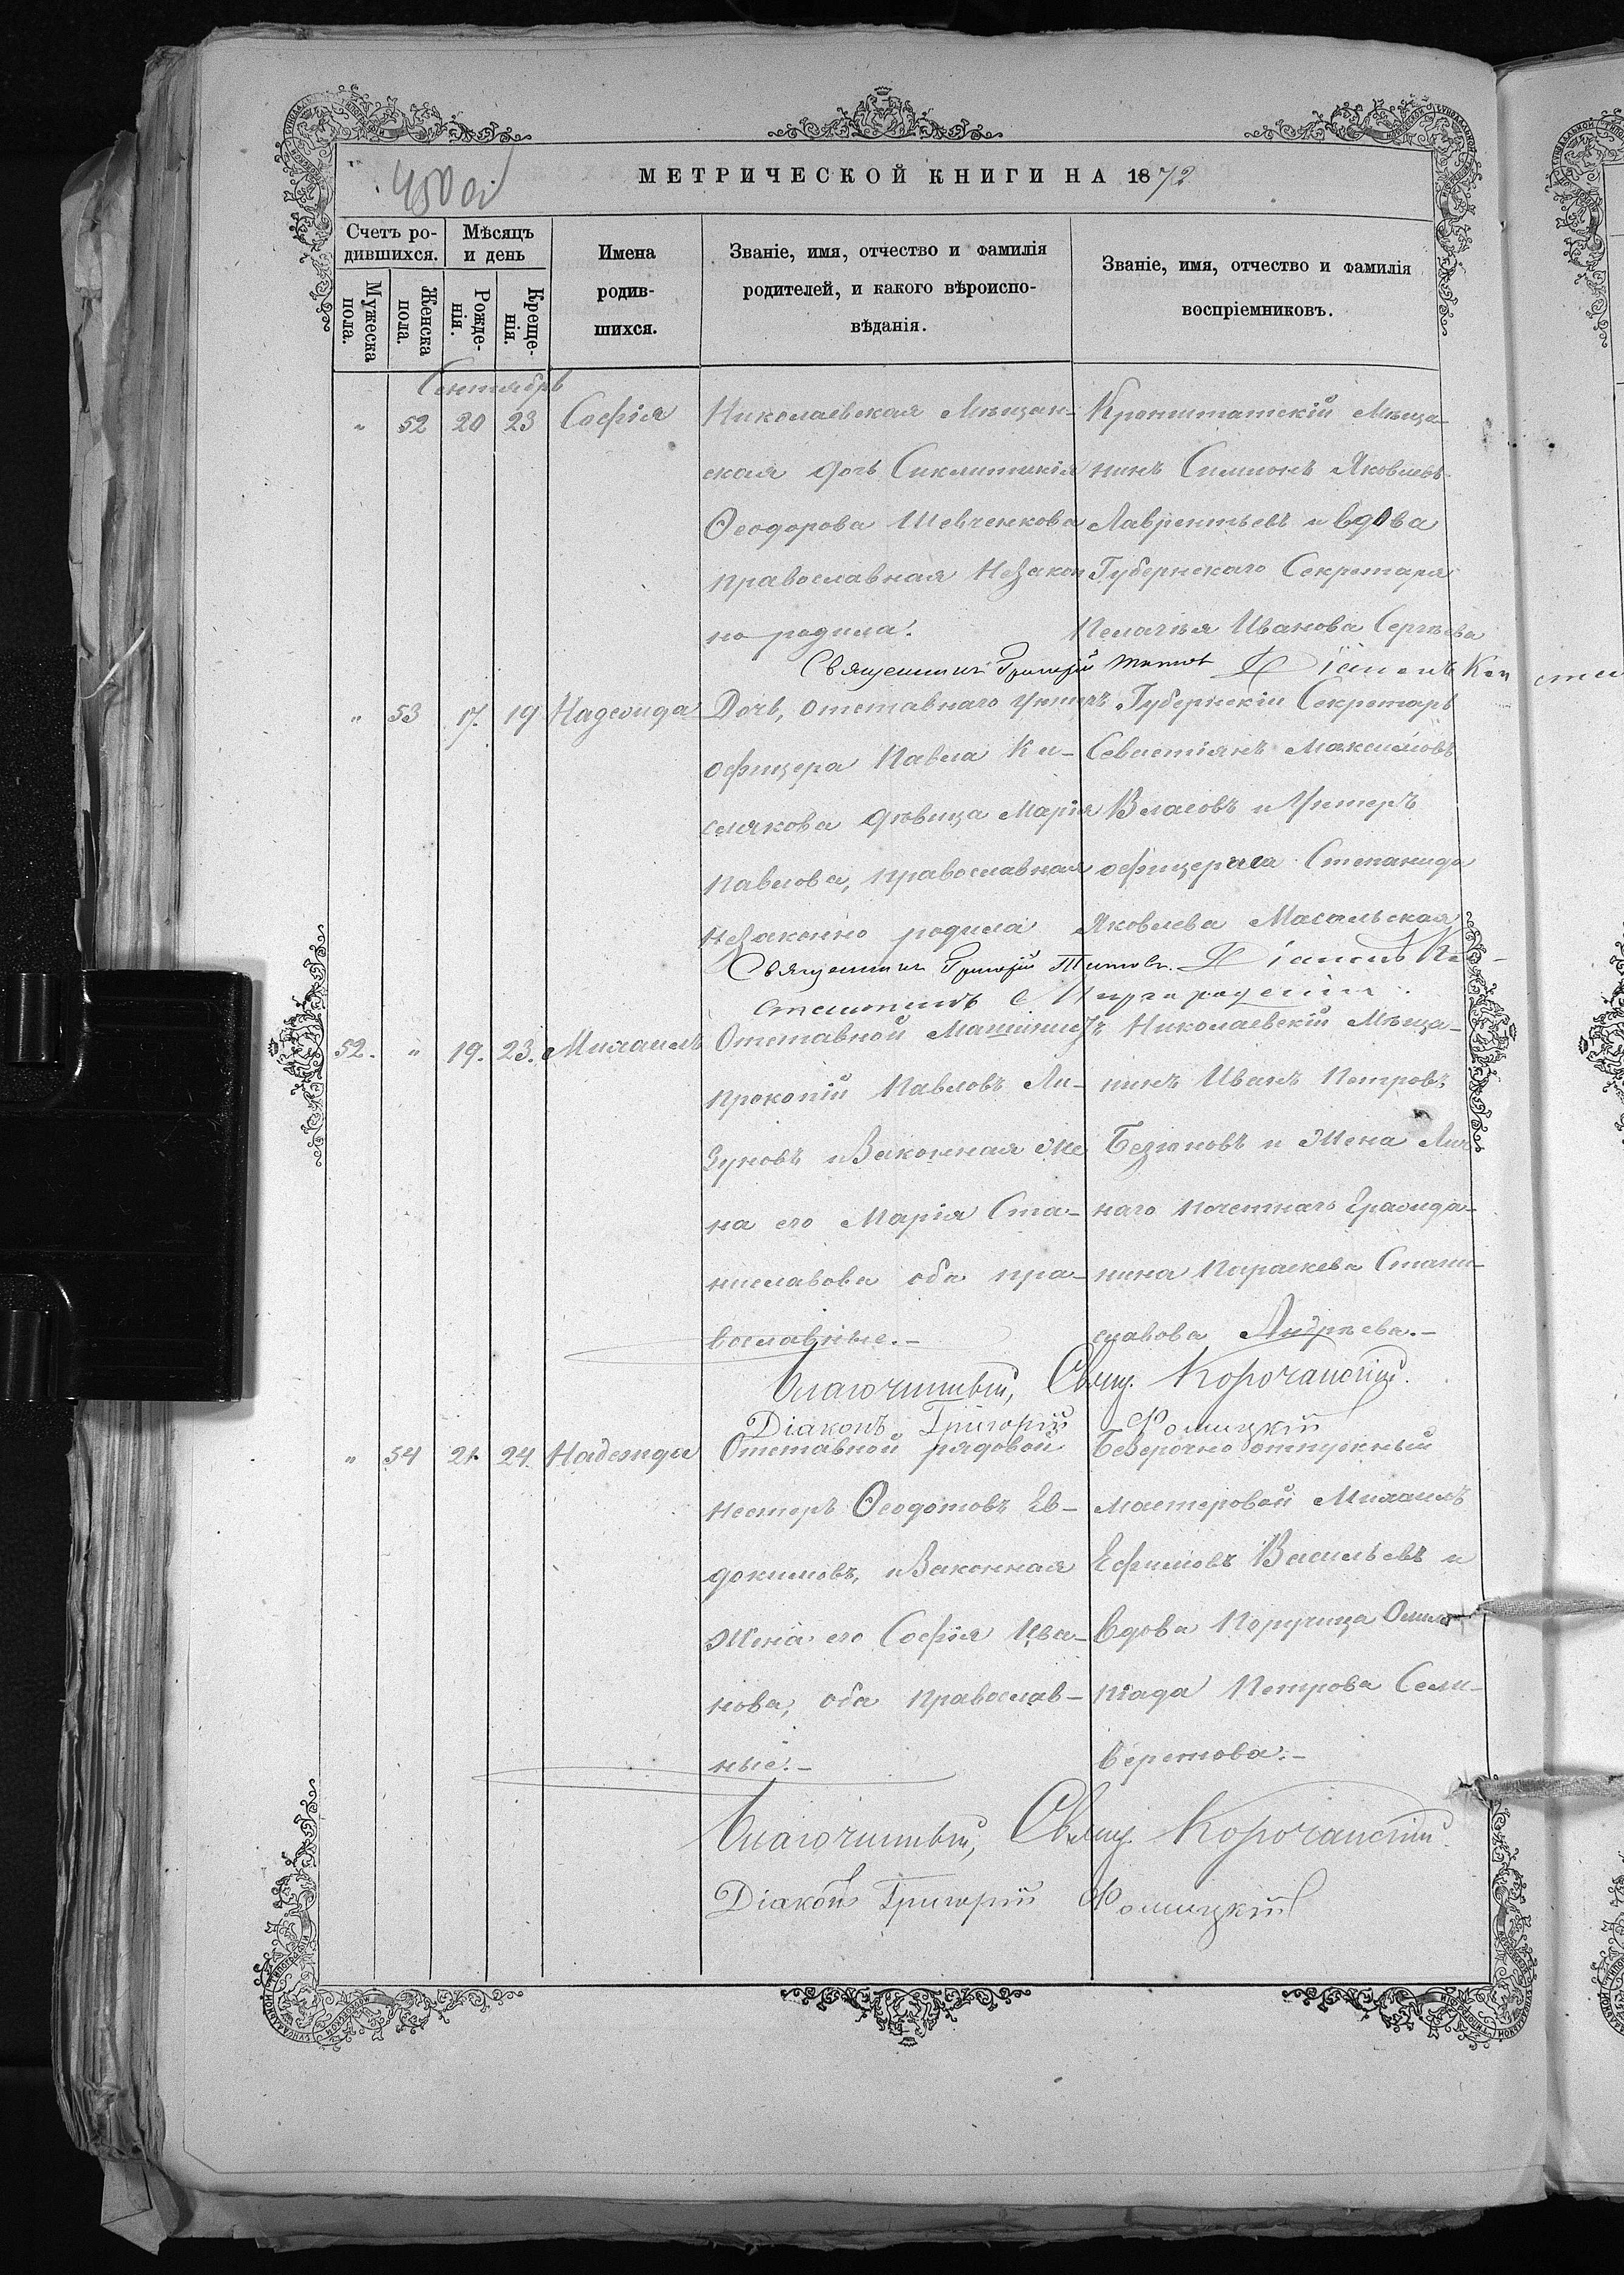 450 об
МЕТРИЧЕСКОЙ КНИГИ НА 1872
Счетъ ро-
дившихся.
Мѣсяцъ
и день
Имена
родив-
шихся.
Званіе, имя, отчество и фамилія
родителей, и какого вѣроиспо-
вѣданія.
Званіе, имя, отчество и фамилія
воспріемниковъ.
Мужеска
пола.
Женска
пола.
Рожде-
нія.
Креще-
нія.
Сентябрь
" 52 20 23 Софія
Николаевская Мѣщан-
ская дочь Сиклитикія
Ѳеодорова Шевченкова
православная незакон
но родила.
Кронштатскій Мѣща-
нинъ Симионъ Яковлевъ
Лаврентьевъ и вдова
Губернскаго Секретаря
Пелагія Иванова Сергѣева
Священникъ Григорій Титовъ Діаконъ Кон
" 53 17. 19 Надежда
Дочь, отставнаго унтеръ
офицера Павла Ки-
селякова дѣвица Марія
Павлова, православная
незаконно родила
Губернскій Секретарь
Севастіянъ Максимовъ
Власовъ и Унтеръ
офицерша Степанида
Яковлева Масальская
Священникъ Григорій Титовъ. Діаконъ Ко-
52. " 19. 23. Михаилъ
Отставной Машинистъ
Прокопій Павловъ Ли-
зуновъ и Законная Же
на его Марія Ста-
ниславова оба пра-
вославные.-
Николаевскій Мѣща-
нинъ Иванъ Петровъ
Безюковъ и Жена Лич
наго почетнаго Гражда-
нина Параскева Стани-
славова Андрѣева.-
Благочинный, Свящ. Корочанскій.
Діаконъ Григорій Фомицкій
" 54 21. 24. Надежда
Отставной рядовой
Несторъ Ѳеодотовъ Ев-
докимовъ, и Законная
Жена его Софія Ива-
нова, оба православ-
ные.-
Безсрочно отпускный
мастеровой Михаилъ
Ефимовъ Васильевъ и
вдова Поручица Олим
піада Петрова Сели-
верстова.-
Благочинный, Свящ. Корочанскій.
Діаконъ Григорій Фомицкій